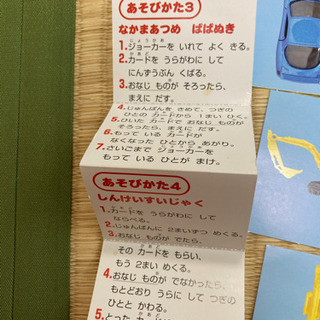 あそびかた3
なかまあつめ ばばぬき
1.ジョーカーを いれて よく きる。
2.カードを うらがわに して
にんずうぶん くばる。
3.おなじ ものが そろったら、
まえに だす。
4.じゅんばんを きめて、つぎの
ひとの カードから 1まい ひく。
5.ひいた カードで おなじ ものが
そろったら、まえに だす。
6.もって いる カードが
なくなった ひとから あがり。
7.さいごまで ジョーカーを
もって いる ひとが まけ。
あそびかた4
しんけいすいじゃく
1.カードを うらがわに して
ならべる。
2.じゅんばんに 2まいずつ めくる。
3.おなじ ものが でたら、
その カードを もらい、
もう 2まい めくる。
4.おなじ ものが でなかったら、
もとどおり うらに して つぎの
ひとと かわる。
5.とった カード